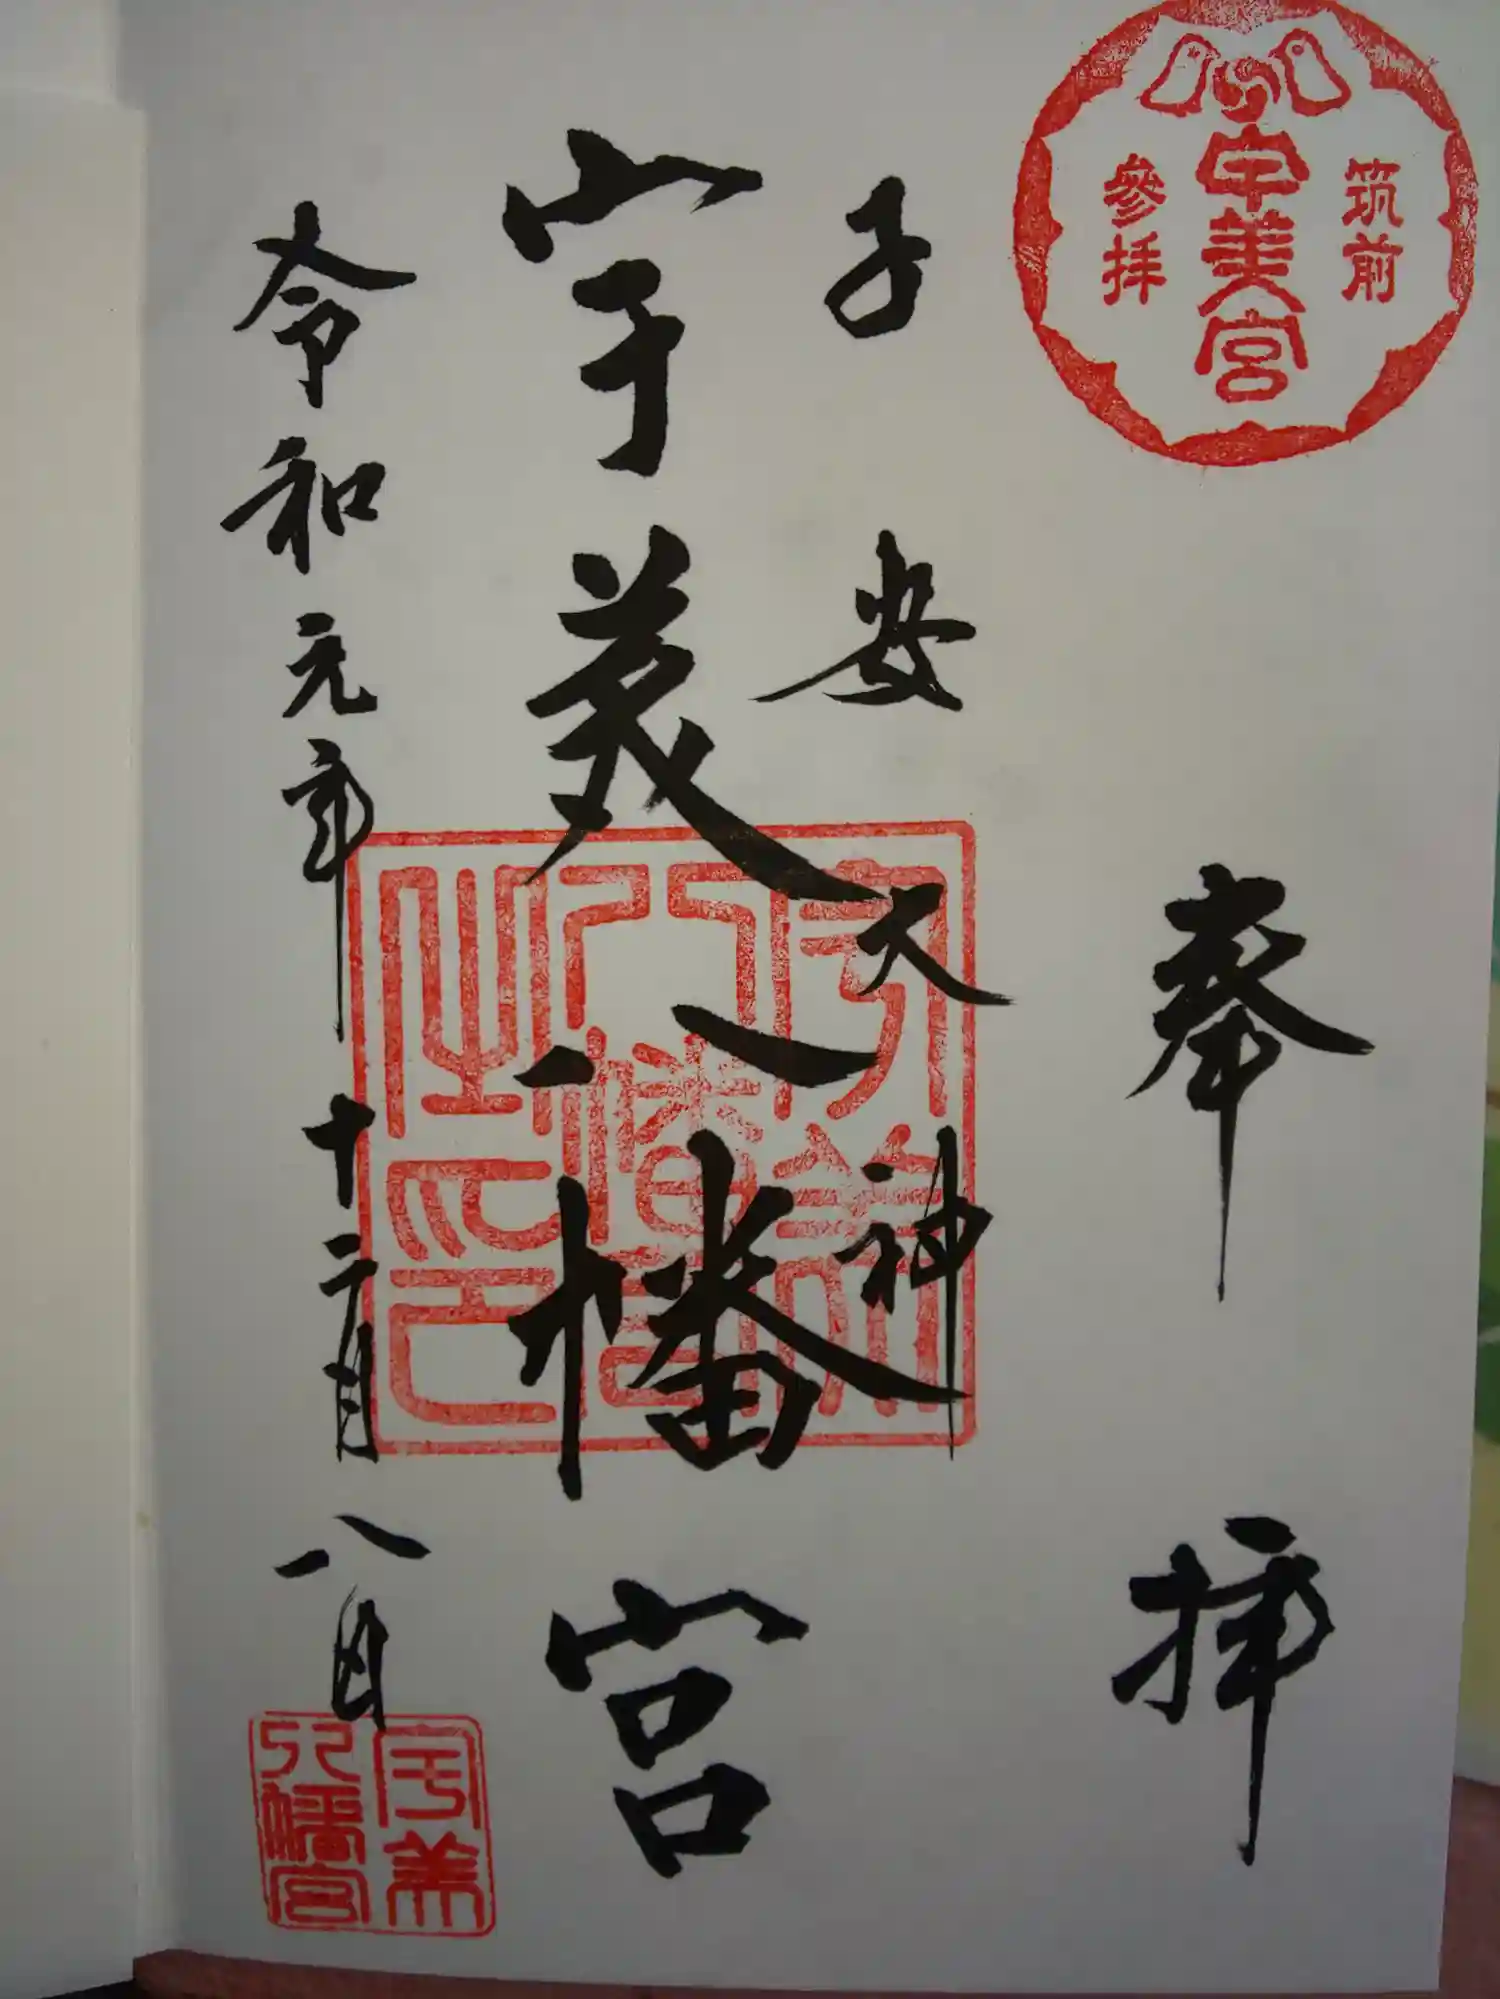 筑前
宇美宮
参拝
奉拝
子安大神
宇美八幡宮
宇美八幡宮之印
令和元年十二月八日
宇美
八幡宮